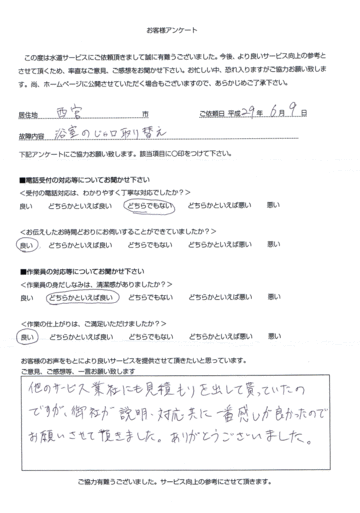 お客様アンケート
この度は水道サービスにご依頼頂きまして誠に有難うございました。今後、より良いサービス向上の参考と
させて頂くため、率直なご意見、ご感想をお聞かせ下さい。お忙しい中、恐れ入りますがご協力お願い致しま
す。尚、ホームページに公開させていただく場合もございますので、あらかじめご了承下さい。
居住地 西宮 市 ご依頼日 平成29年6月9日
故障内容 浴室のじゃ口取り替え
下記アンケートにご協力お願い致します。該当項目に○印をつけて下さい。
■電話受付の対応等についてお聞かせ下さい
<受付の電話対応は、わかりやすく丁寧な対応でしたか?>
良い どちらかといえば良い どちらでもない どちらかといえば悪い 悪い
<お伝えしたお時間どおりにお伺いすることができていましたか?>
良い どちらかといえば良い どちらでもない どちらかといえば悪い 悪い
■作業員の対応等についてお聞かせ下さい
<作業員の身だしなみは、清潔感がありましたか?>
良い どちらかといえば良い どちらでもない どちらかといえば悪い 悪い
<作業の仕上がりは、ご満足いただけましたか?>
良い どちらかといえば良い どちらでもない どちらかといえば悪い 悪い
お客様のお声をもとにより良いサービスを提供させて頂きたいと思っています。
ご意見、ご感想等、一言お願い致します
他のサービス業社にも見積もりを出して貰っていたの
ですが、御社が説明・対応共に一番感じが良かったので
お願いさせて頂きました。ありがとうございました。
ご協力有難うございました。サービス向上の参考にさせて頂きます。